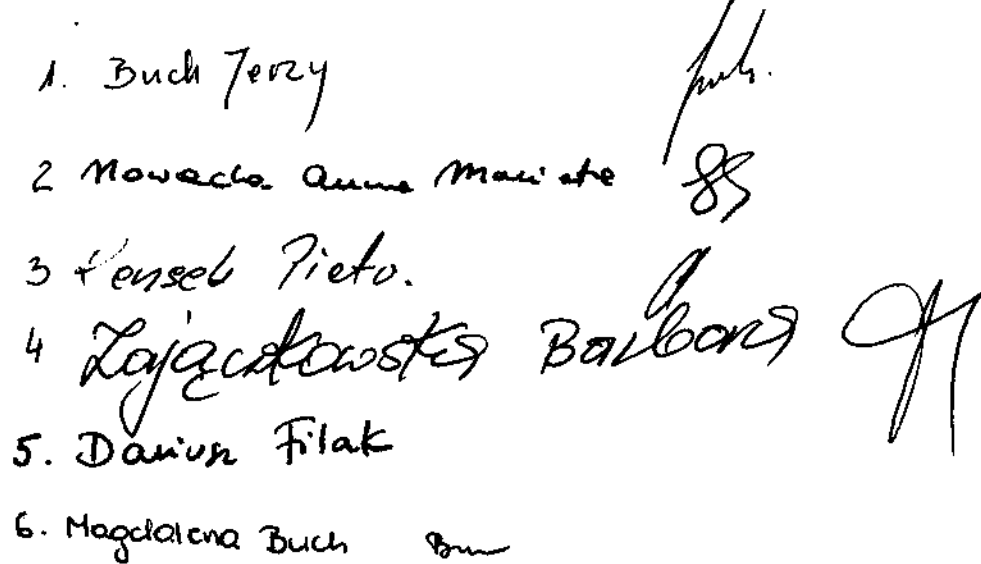 1. Buch Jerzy
2 Nowacka Anna Maria
3 Piotr.
4 Zajączkowska Barbara
5. Dariusz Filak
6. Magdalena Buch